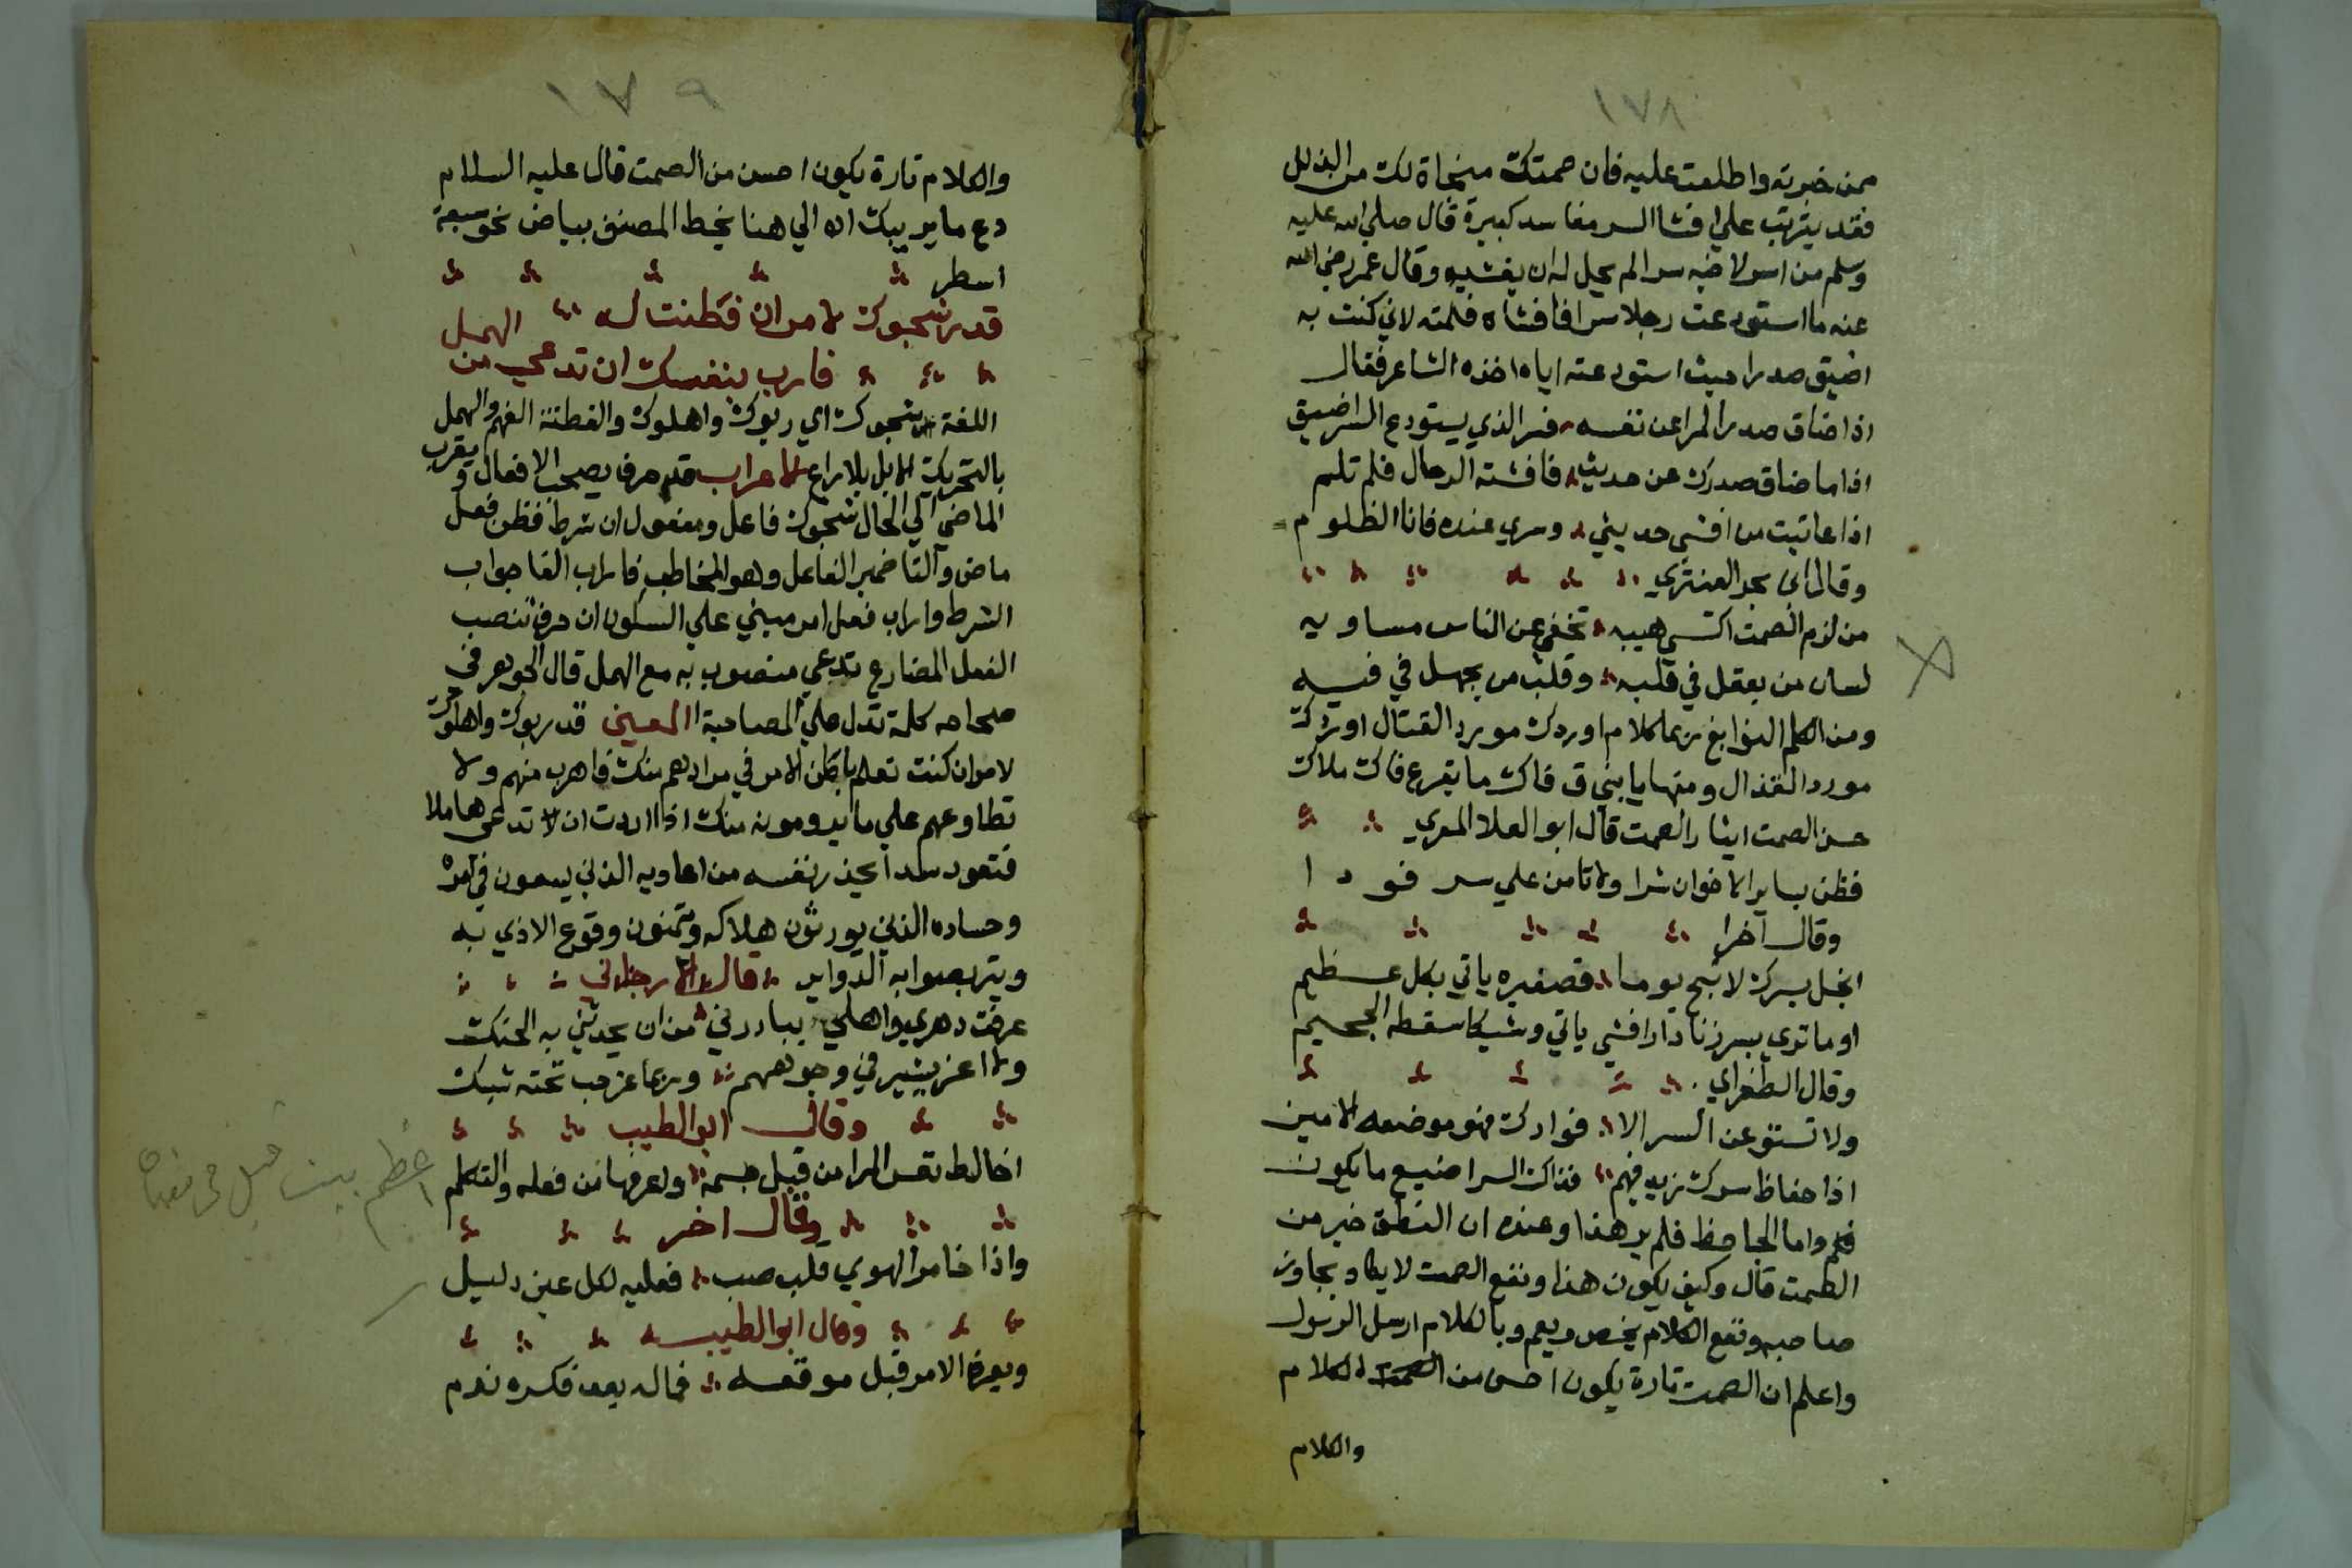 ١٧٨
ممن خبرته واطلعت عليه فان صمتك منجاة لك من الزلل
فقد يترتب علي افشا السر مفاسد كبيرة قال صلي الله عليه
وسلم من اسر لاخيه سرا لم يحل له ان يفشيه وقال عمر رضي الله
عنه ما استودعت رجلا سرا فافشاه فلمته لاني كنت به
اضيق صدرا حيث استودعته اياه اخذه الشاعر فقال
اذا ضاق صدر المرا عن نفسه فسر الذي يستودع السر اضيق
اذا ما ضاق صدرك عن حديث فافشته الرجال فلم تلم
اذا عاتبت من افشي حديثي وسري عنده فانا الظلوم
وقال العنتري
من لزم الصمت اكتسي هيبه تخفي عن الناس مساويه
لسان من يعقل في قلبه وقلب من يجهل في فيه
ومن الكلم النوابغ ربما كلام اوردك مورد القتال اوردك
مورد القذال ومنها يا بني ق فاك ما يقرع فاك ملاك
حسن الصمت ايثار الصمت قال ابو العلا المعري
فظن بساير الاخوان شرا ولا تامن علي سر فودا
وقال اخرا
ابخل بسرك لا تبح يوما فصغيره ياتي بكل عظيم
او ما تري بسر زناد ار افشي ياتي وشيكا سقطه الجحيم
وقال الطغراي
ولا تستودعن السر الا فوادك فهو موضعه الامين
اذا حفاظ سرك زيد فيهم فذاك السر اضيع ما يكون
واما الجاحظ فلم ير هذا وعنده ان النطق خير من
الصمت قال وكيف يكون هذا ونفع الصمت لا يكاد يجاوز
صاحبه ونفع الكلام يخص ويعم وبالكلام ارسل الرسول
واعلم ان الصمت تارة يكون احسن من الكلام
والكلام
١٧٩
والكلام تارة يكون احسن من الصمت قال عليه السلام
دع ما يريبك اه الي هنا بخط المصنف بياض نحو سبعة
اسطر
قد رشحوك لامر ان فطنت له
فاربا بنفسك ان تدعي من الهمل
اللغة رشحوك اي ربوك واهلوك والفطنة الفهم والهمل
بالتحريك الابل بلا راع الاعراب قد حرف يصحب الافعال ويقرب
الماضي الي الحال رشحوك فاعل ومفعول ان شرط فطن فعل
ماض والتا ضمير الفاعل وهو المخاطب فاراب الفا جواب
الشرط واراب فعل امر مبني علي السكون ان حرف تنصب
الفعل المضارع تدعي منصوب به مع الهمل قال الجوهر في
صحاحه كلمة تدل علي المصاحبة المعني قد ربوك واهلوك
لامر ان كنت تعلم باطن الامر في مرادهم منك فاهرب منهم ولا
تطاوعهم علي ما يرومونه منك اذا اردت ان لا تدعي هاملا
فتعود سدا يحذر نفسه من اعاديه الذي يسعون في
وحساده الذين يورثون هلاكه ويتمنون وقوع الاذي به
ويتربصوا به الدواير قال الارجاني
عرفت دهري واهلي ببادرتي من ان يحدثني به الحنك
ولا اغر ببشر في وجوههم وربما غر حب تحته شبك
وقال ابو الطيب
اخالط نفس المرا من قبل جسمه واعرفها من فعله والتكلم
وقال اخر
واذا خامر الهوي قلب صب فعليه لكل عين دليل
وقال ابو الطيب
ويعرف الامر قبل موقعه فماله بعد فكره ندم
اعظم بيت قيل في